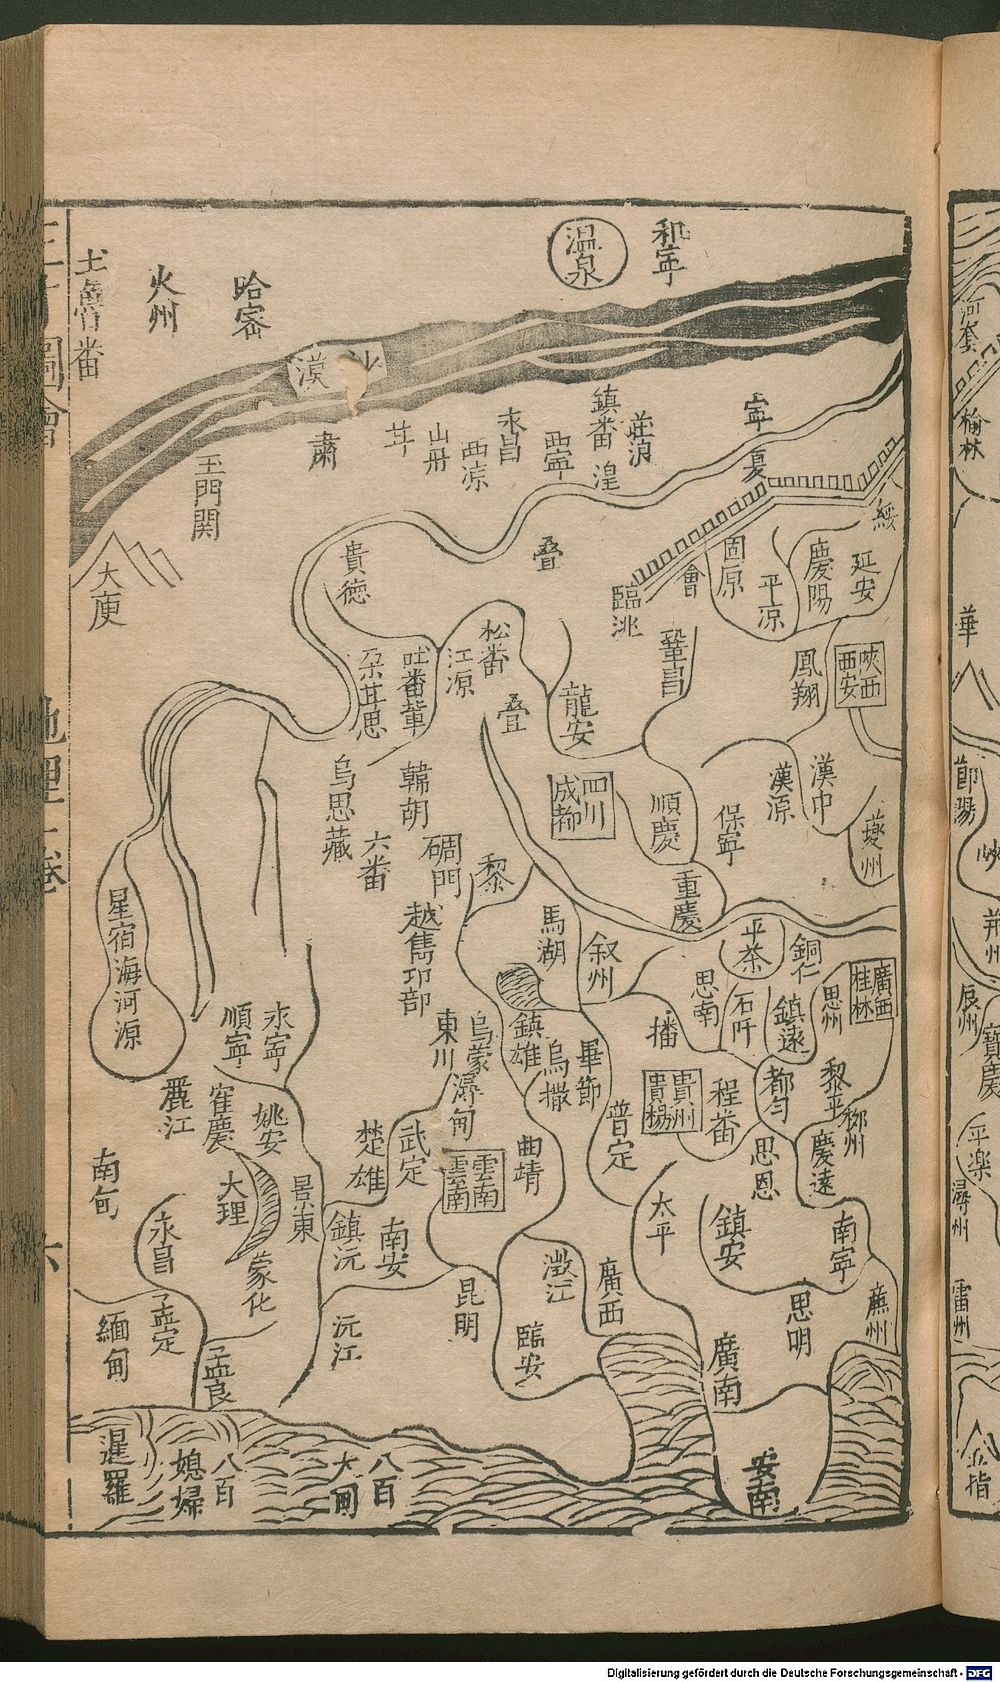 和寧
温泉
哈密
火州
土魯番
沙漠
寧夏
莊浪
鎮番
湟
西寧
永昌
西凉
山丹
甘
肅
玉門関
大庾
綏
延安
慶陽
平凉
固原
會
臨洮
疊
貴德
陜西
西安
鳳翔
鞏昌
松番
江源
吐番
朶甘思
龍安
疊
漢中
漢源
保寧
夔州
順慶
四川
成都
韓胡
烏思藏
六番
碉門
黎
重慶
越雋邛部
馬湖
叙州
平茶
銅仁
思南
石阡
鎮遠
思州
廣西
桂林
星宿海河源
順寧
永寧
東川
烏蒙
鎮雄
烏撒
畢節
播
貴州
貴楊
程番
都勻
黎平
柳州
慶遠
思恩
普定
潯甸
麗江
姚安
楚雄
武定
雲南
雲南
曲靖
南甸
大理
景東
永昌
蒙化
鎮沅
南安
澂江
廣西
太平
鎮安
南寧
緬甸
孟定
孟艮
沅江
昆明
臨安
廣南
思明
暹羅
八百
媳婦
八百
大甸
安南
三才圖會
地理一卷
六
河套
榆林
華
荆州
辰州
寶慶
平楽
潯州
雷州
Digitalisierung gefördert durch die Deutsche Forschungsgemeinschaft - DFG